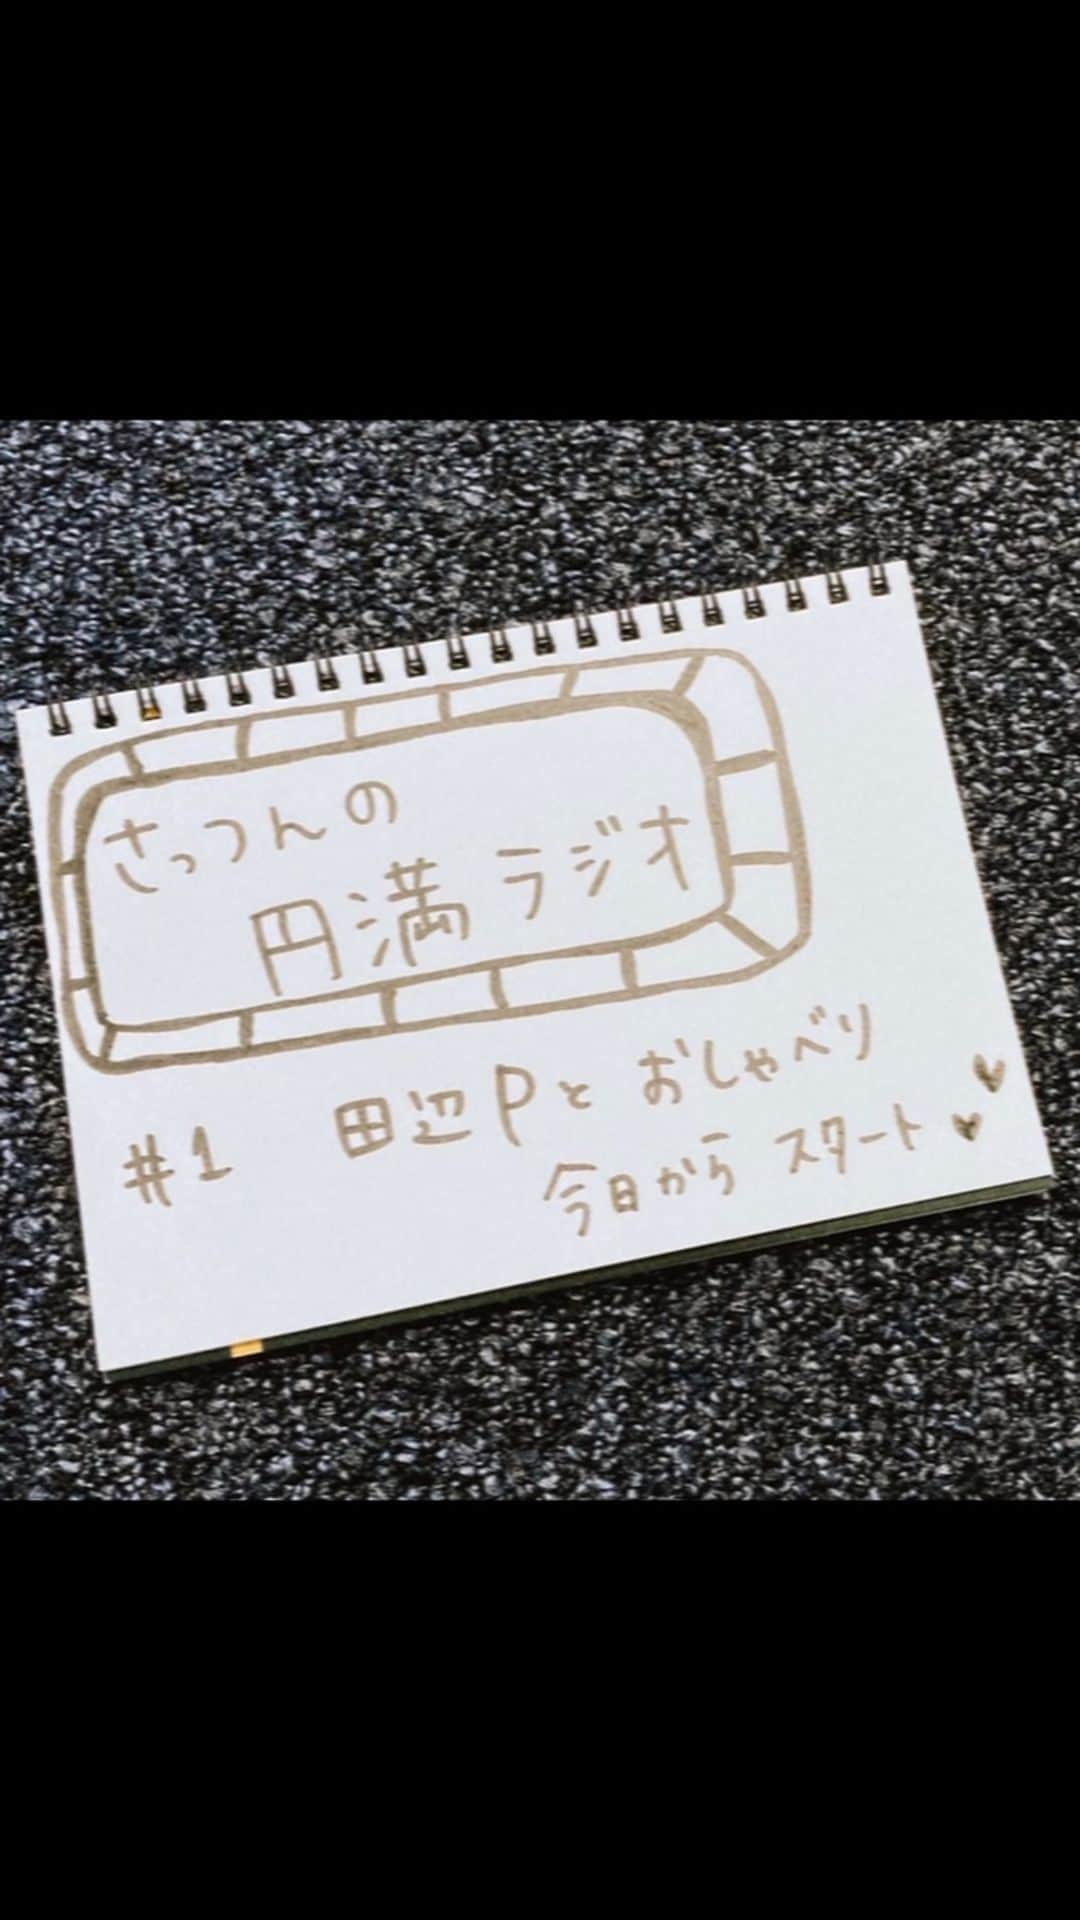 さっつんの
円満ラジオ
#1 田辺Pとおしゃべり
今日からスタート